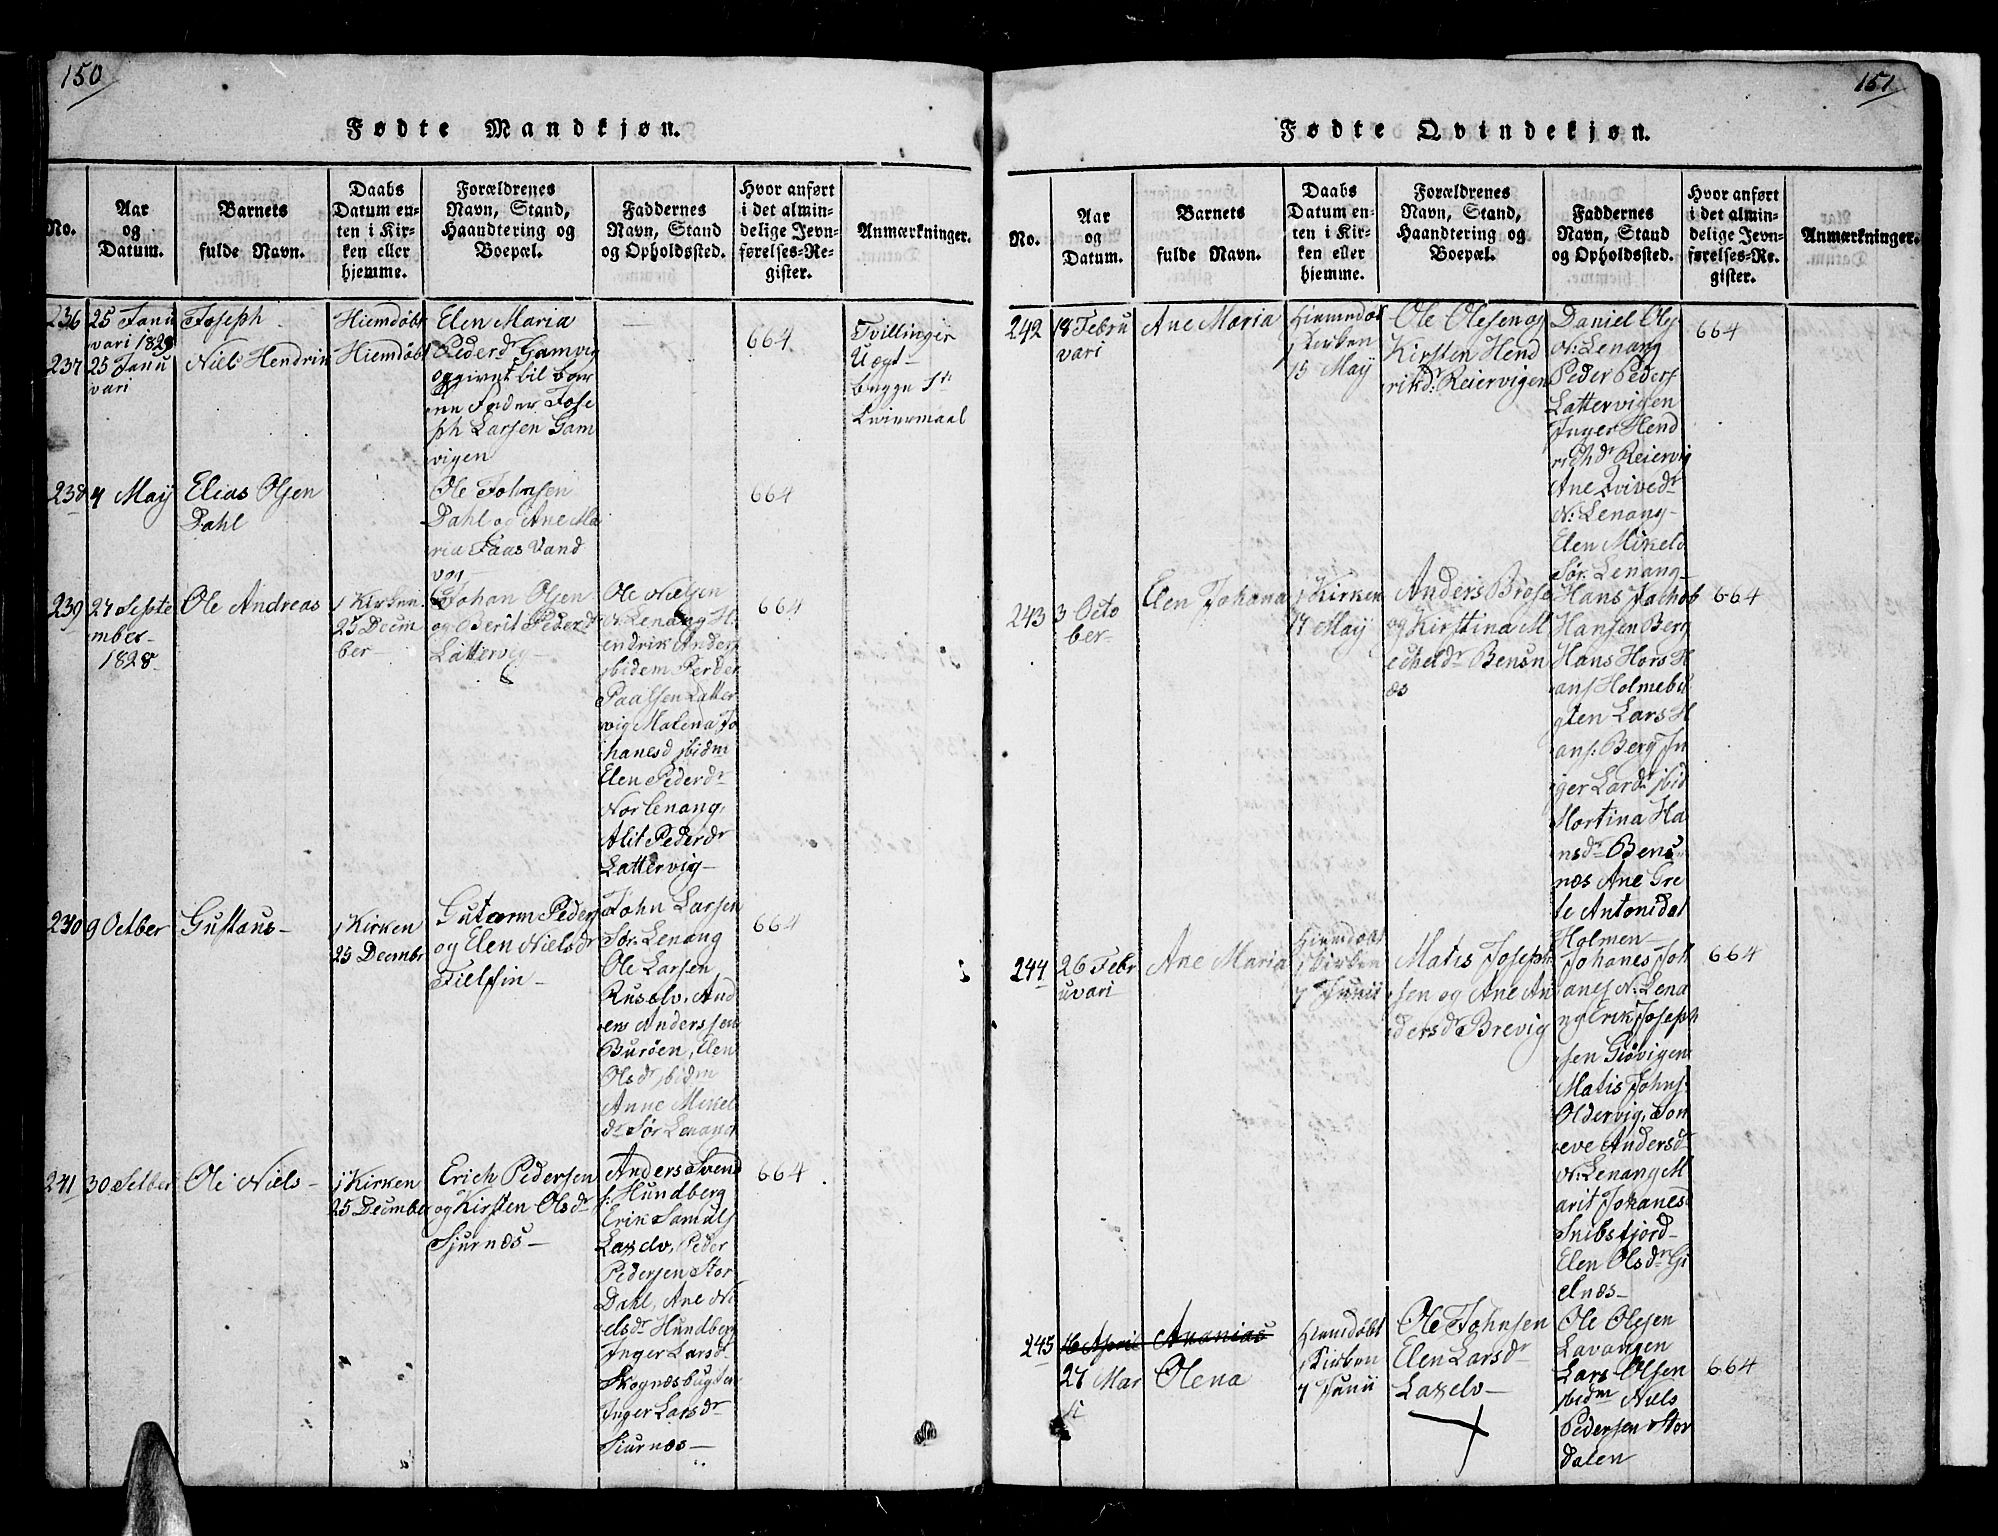 150
Fødte Mandkjøn.
No.
Aar
og
Datum.
Barnets
fulde Navn.
Daabs
Datum en-
ten i Kir-
ken eller
hjemme.
Forældrenes
Navn, Stand,
Haandtering og
Boepæl.
Faddernes
Navn, Stand
og Opholdssted.
Hvor anført
i det almin-
delige Jevn-
førelses-Re-
gister.
Anmærkninger.
236
25 Janu
vari 1828
Joseph
Hiemdøbt
237
25 Janu
vari
Niels Hendrik
Hiemdøbt
Elen Maria
Pederdr Gamvig
opgivet til bør
ne Fader Jose
ph Larsen Gam
vigen
664
Tvillinger
Uegt
begge 1te
Leiermaal
238
4 May
Elias Olsen
Dahl
Ole Johnsen
Dahl og Ane Ma
ria Faas Vand
vog
664
239
27 Septe
mber
1828
Ole Andreas
i Kirken
25 Decem
ber
Johan Olsen
og Berit Pederdr
Lattervig
Ole Nielsen
N. Lenang H
endrik Anders
ibidem Perder
Paalsen Latter
vig Malena Jo
hanesd ibidm
Elen Pederdr
Norlenang
Alit Pederdr
Lattervig
664
240
9 Octber
Gustaus
i Kirken
25 Decembr
Gutorm Peders
og Elen Nielsdr
Fielfin
John Larsen
Sør. Lenang
Ole Larsen
Ruselv, And
ers Anderssen
Burøen, Elen
Olsdr ibidm
Anne Mikel
dr Sør Lenang
664
241
30 Setber
Ole Niels
i Kirken
25 December
Erich Pedersen
og Kirsten Olsdr
Sjurnæs
Anders Svend
s: Hundberg
Erik Samuls
Laxelv, Peder
Pedersen Stor
Dahl, Ane Ni
elsdr Hundberg
Inger Larsd
Skognæsbugten
Inger Larsdr
Siurnæs
664
151
Fødte Qvindekjøn.
No.
Aar
og
Datum.
Barnets
fulde Navn.
Daabs
Datum en-
ten i Kir-
ken eller
hjemme.
Forældrenes
Navn, Stand,
Haandtering og
Boepæl.
Faddernes
Navn, Stand
og Opholdssted.
Hvor anført
i det almin-
delige Jevn-
førelses-Re-
gister.
Anmærkninger.
242
18 Febru
vari
Ane Maria
Hiemdøbt
i Kirken
15 May
Ole Olesen og
Kirsten Hend
rikdr Reiervigen
Daniel Ols
N: Lenang
Peder Peders
Lattervigen
Inger Hend
richdr Reiervig
Ane Ivivedr
N: Lenang
Elen Mikeld
Sør. Lenang
664
243
3 Octo
ber
Elen Johana
i Kirken
17 May
Anders Brose
og Kirstina M
echeldr Bensn
æs
Hans Jachob
Hansen Berg
Hans Hors H
ans Holmebu
gten Lars H
ans: Berg In
ger Lardr ibid
Mortina Ha
nsdr Bens
næs Ane Gre
te Antonidat
Holmen
664
244
26 Febr
uvari
Ane Maria
Hiemdøbt
i Kirken
7 Junii
Matis Joseph
sen og Ane An
dersdr Brevig
Johanes Joh
anes N: Lena
ng Erik Joseph
sen Giøvigen
Matis Johns:
Oldervig, Son
eve Andersd
N: Lenang M
arit Johanes
Snibsfjord
Elen Olsdr Gi
elnæs
664
245
16 April
Ananias
27 Mar
ti
Olena
Hiemdøbt
i Kirken
7 Junii
Ole Johnsen
Elen Larsdr
Laxelv
Ole Olesen
Lavangen
Lars Olsen
ibidm Niels
Pedersen Stor
dalen
664